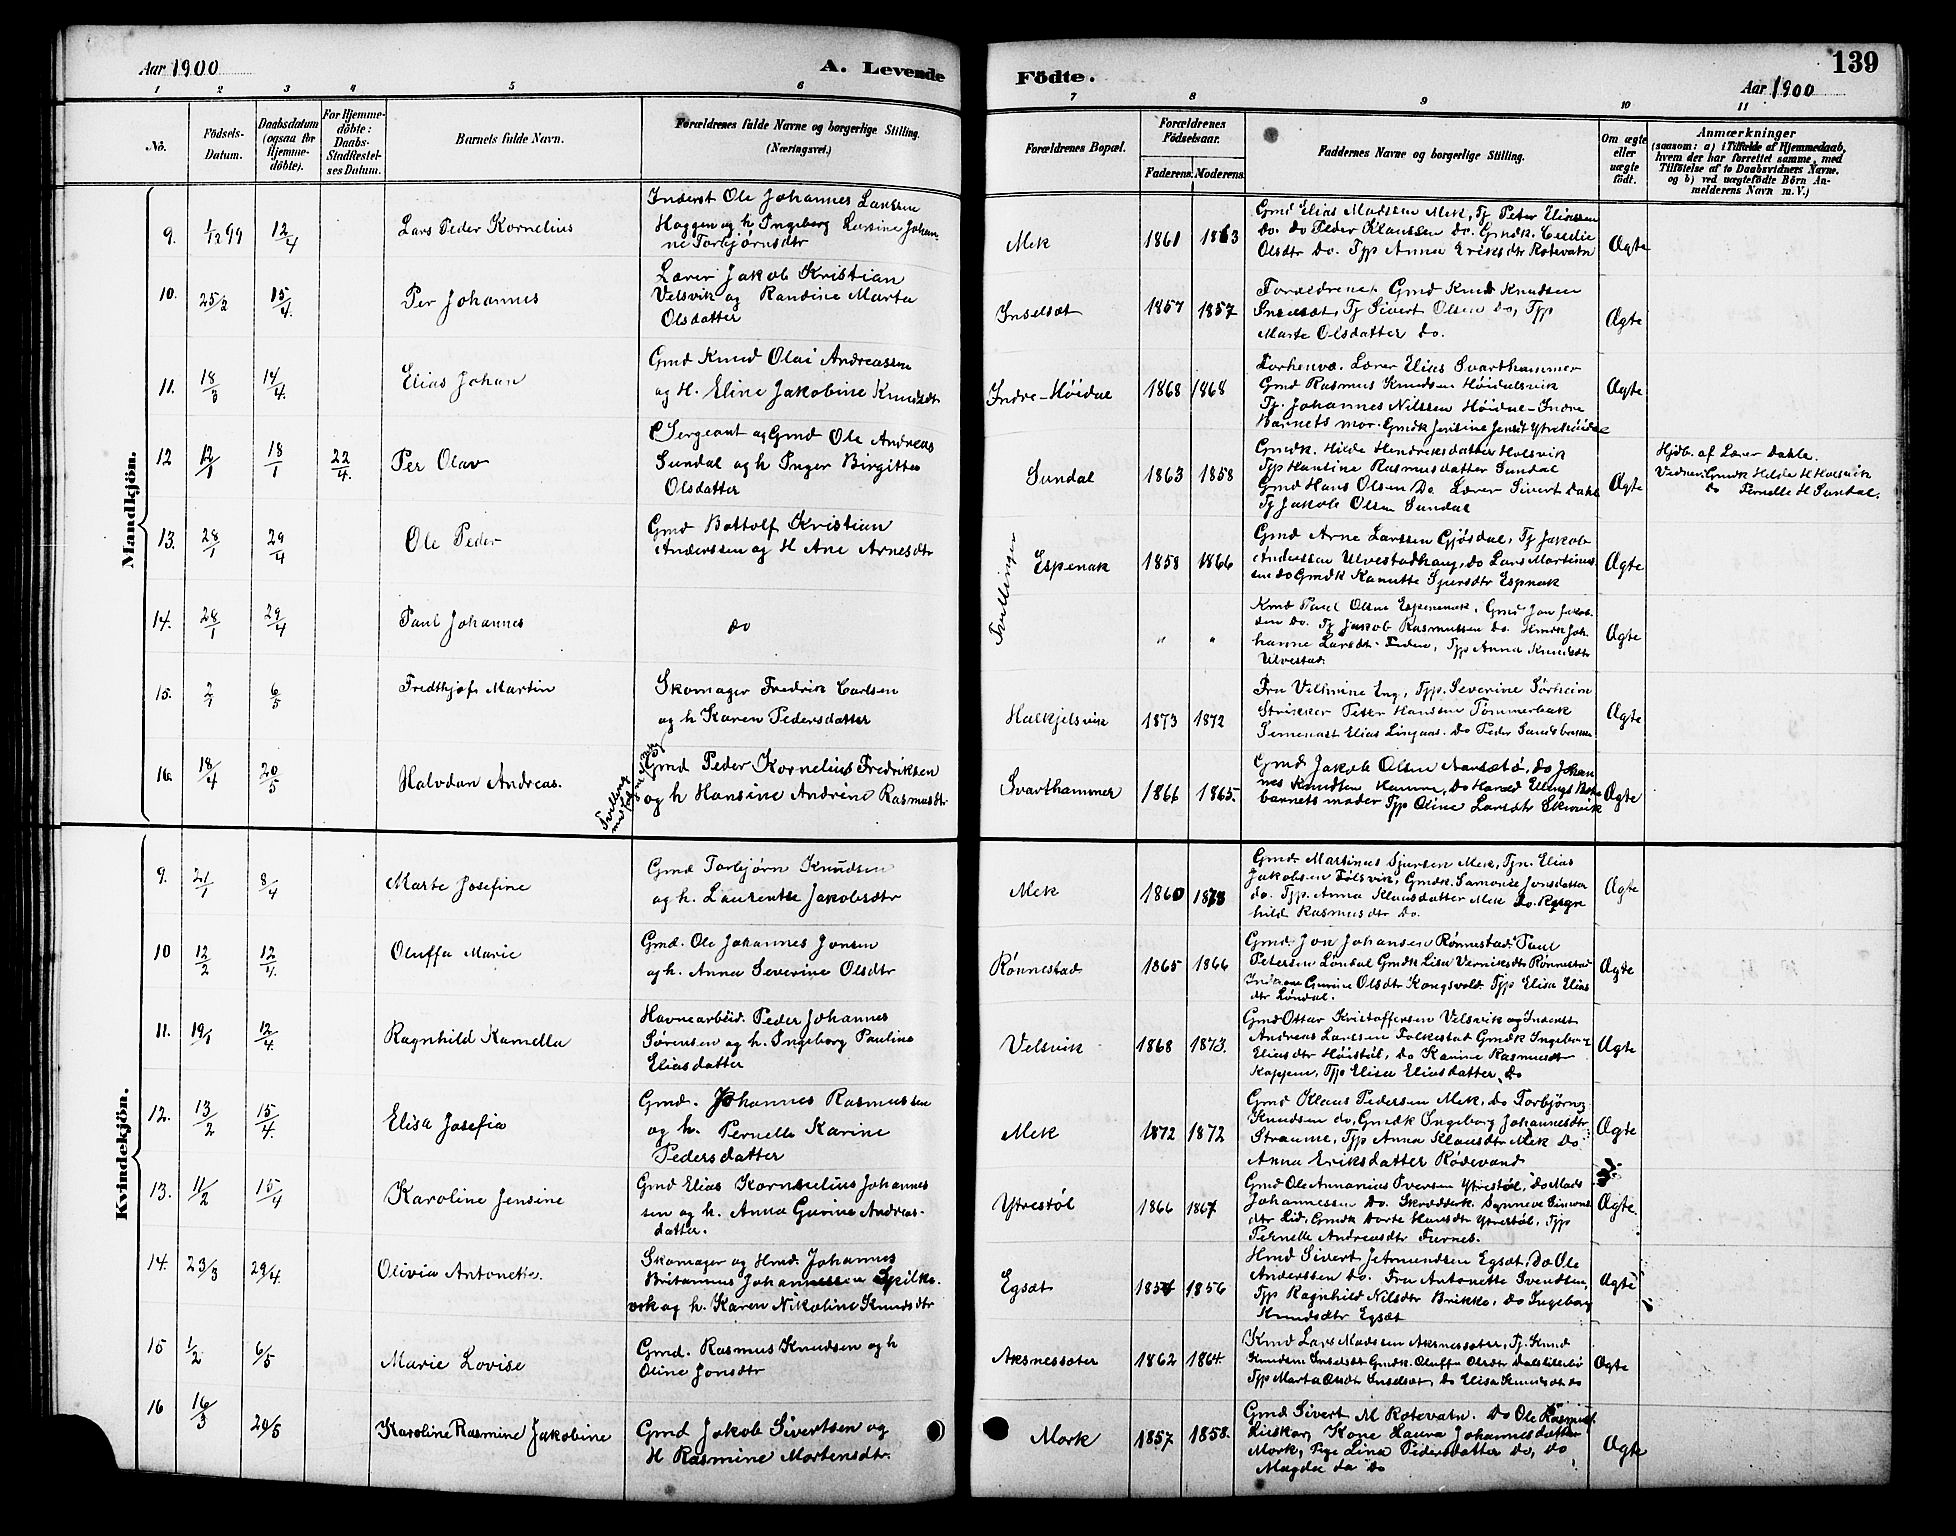 Aar 1900
A. Levende
Födte.
139
Aar 1900
1 2 3 4 5 6 7 8 9 10 11
No.
Födsels-Datum.
Daabsdatum (ogsaa for Hjemmedöbte).
For Hjemmedöbte: Daabs-Stadfestelses Datum.
Barnets fulde Navn.
Forældrenes fulde Navne og borgerlige Stilling.
(Næringsvei.)
Forældrenes Bopæl.
Forældrenes Födselsaar.
Faderens. Moderens.
Faddernes Navne og borgerlige Stilling.
Om ægte eller uægte födt.
Anmærkninger
(saasom: a) i Tilfælde af Hjemmedaab, hvem der har forrettet samme, med Tilföielse af to Daabsvidners Navne, og b) ved uægtefödte Börn Anmelderens Navn m. V.)
Mandkjön.
9. 1/12 99 12/4 Lars Peder Kornelius
Inderst Ole Johannes Larssen
Haggen og h. Ingeborg Larsine Johan
ne Torbjørnsdtr
Mek 1861 1863
Gmd Elias Madssen Mek, Tj Peter Eliassen
do. do Peder Klaussen do. Gmdk. Cecilie
Olsdtr do. Tjp Anna Eriksdtr Rotevatn
Ægte
10. 25/2 15/4. Per Johannes
Lærer Jakob Kristian
Velsvik og Randine Marta
Olsdatter
Inselsæt 1857 1857
Forældrene, Gmd Knud Knudsen
Inselsæt, Tj Sivert Olsen do, Tjp
Marte Olsdatter do.
Ægte
11. 18/3 14/4. Elias Johan
Gmd Knud Olai Andreassen
og H. Eline Jakobine Knudsdtr
Indre-Høidal 1868 1868
Forhenv. Lærer Elias Svarthammer
Gmd Rasmus Knudsen Høidalsvik
Tj. Johannes Nilssen Høidal-Indre
Barnets mor. Gmdk Jensine Jensdt Ytrehøidal
Ægte
12 12/1 18/1 22/4. Per Olav
Sergeant og Gmd Ole Andreas
Sundal og h Inger Birgitte
Olsdatter
Sundal 1863 1858
Gmdk. Hilde Hendriksdatter Holsvik
Tjp Hantine Rasmusdatter Sundal
Gmd Hans Olsen do. Lærer Sivert Dahle
Tj Jakob Olsen Sundal
Ægte
Hjdb. af Lærer Dahle.
Vidner: Gmdk Hilde H Holsvik
do Pernelle H Sundal.
13. 28/1 29/4 Ole Peder
Gmd Bottolf Kristian
Anderssen og H Ane Arnesdtr
Tvillinger
Espenak 1858 1866
Gmd Arne Larssen Gjøsdal, Tj Jakob
Anderssen Ulvestadhaug, do Lars Martinus
sen do Gmdk Kanutte Sjursdtr Espnak
Ægte
14. 28/1 29/4 Paul Johannes
do
" "
Gmd Paul Olsen Espenak, Gmd Jon Jakob
sen do. Tj Jakob Rasmussen do. Hmdk Joh
hanne Larsdt. Tjp Anna Knudsdtr
Ulvestad.
Ægte
15. 6/5 Fredthjof Martin
Skomager Fredrik Carlsen
og h Karen Pedersdatter
Halkjelsvik 1873 1872
Fru Vilhmine Eng, Tjp. Severine Sørheim
Strikker Peter Hanssen Tømmerbak
Elias Lingaas. do Peder
Ægte
16. 18/4 20/5 Halvdan Andreas.
Tvilling
Gmd Peder Kornelius Fredriksen
og h Hansine Andrine Rasmusdtr
Svarthammer 1866 1865.
Gmd Jakob Olsen Aarsætø, do Johan
nes Knudsen Hamre, do Harald Ellings
barnets moder Tjp Oline Larsdtr
Ægte
Kvindekjön.
9. 21/1 8/4 Marte Josefine
Gmd Torbjørn Knudsen
og h. Laurentse Jakobsdtr
Mek 1860
Gmd Martinus Sjursen Mek, Tjn. Elias
Jakobsen Følsvik, Gmdk. Samonee Jonsdatter
do. Tjp. Anna Klausdatter Mek do. Ragn
hild Rasmusdtr do.
Ægte
10 12/2 12/4. Oluffa Marie
Gmd. Ole Johannes Jonsen
og h. Anna Severine Olsdtr
Rønnestad 1865 1866
Gmd. Jon Johansen Rønnestad. Paul
Petersen Løndal Gmdk Lisa Verniksdtr Rønnestad
Gurine Olsdtr Kongsvold. Tjp Elisa Elias
dtr Løndal.
Ægte
11. 19/1 12/4. Ragnhild Kamella
Havnearbeid. Peder Johannes
Sørensen og h. Ingeborg Pauline
Eliasdatter
Velsvik 1868 1873.
Gmd Ottar Kristoffersen Velsvik og Inderst
Andreas Larssen Folkestad Gmdk Ingeborg
Eliasdtr Høistøl, do Karine Rasmusdtr
Koppen, Tjp Elisa Eliasdatter do
Ægte
12. 13/2 15/4. Elisa Josefia
Gmd. Johannes Rasmussen
og h. Pernelle Karine
Pedersdatter
Mek 1872 1872
Gmd Klaus Pedersen Mek, do Torbjørn
Knudsen do, Gmdk Ingeborg Johannesdtr
Straume, Tjp Anna Klausdtr Mek do
Anna Eriksdatter Rødevand
Ægte
13. 11/2 15/4 Karoline Jensine
Gmd Elias Kornelius Johannes
sen og h. Anna Gurine Andreas-
datter.
Ytrestøl 1866 1867
Gmd Ole Annanias Iversen Ytrestøl, do Mads
Johannessen do. Synneve Simons
dtr Lid, Gmdk Dorte Hansdtr Ytrestøl, Tjp
Pernelle Andreasdtr Furnes.
Ægte.
14. 23/3 29/4. Olivia Antonette.
Skomager og Hmd. Johannes
Britannus Johannessen Spilke-
vik og h. Karen Nikoline Knudsdtr
Egsæt 1856
Hmd Sivert Jetmundsen Egsæt, do Ole
Anderssen do. Fru Antonette Svendsen,
Tjp Ragnhild Nilsdtr Brikke, do Ingeborg
Knudsdtr Egsæt
Ægte
15 1/2 6/5 Marie Lovise
Gmd. Rasmus Knudsen og h
Oline Jonsdtr
Aksnessæter 1862 1864.
Gmd Lars Madssen Aksnessæter, Tj. Knud
Knudsen Inselsæt Gmdk. Oluffa Olsdtr
Tjp Marta Olsdtr Inselsæt, do Elisa Knudsdt do
Ægte
16 16/3 20/5 Karoline Rasmine Jakobine
Gmd Jakob Sivertsen og
H Rasmine Mortensdtr.
Mork 1857 1858.
Gmd Sivert M Rotevatn. do Ole Rasmus
Liaskar, Kone Laura Johannesdatter
Mork, Pige Lina Pedersdatter do, do
Magda do do
Ægte